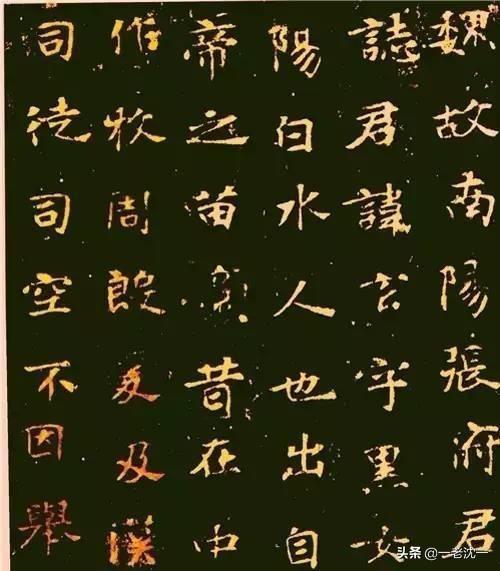 魏故南陽張府君
誌君諱玄字黑女
陽白水人也出自
帝之苗裔昔在中
作牧周殷爰及漢
司徒司空不因舉
头条 @一老沈一